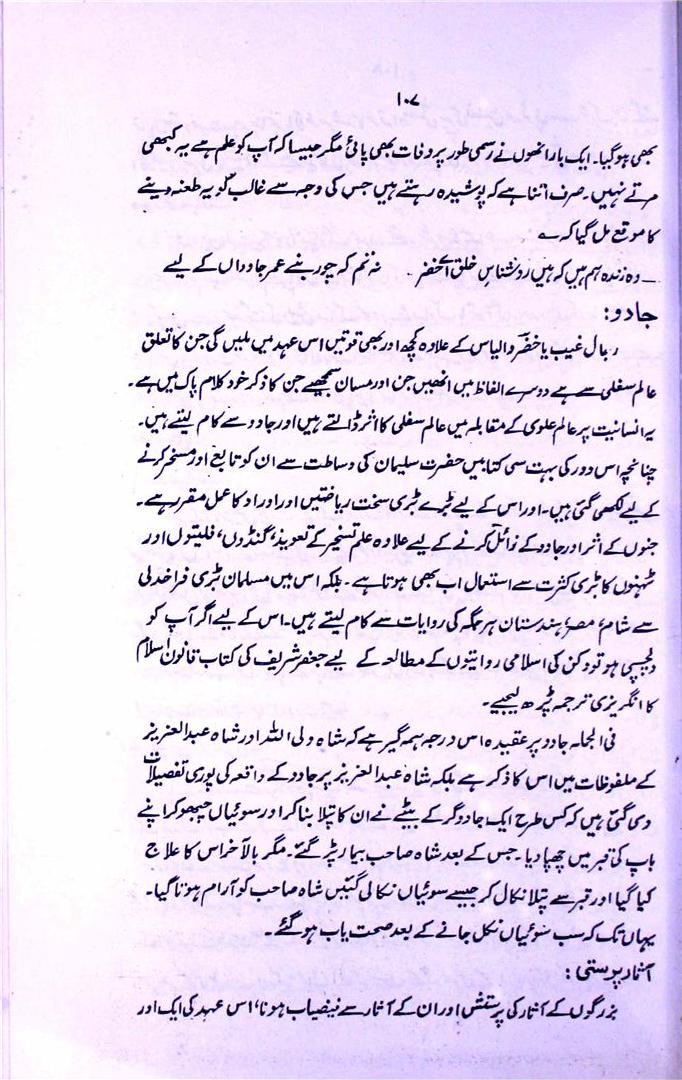 ۱۰۷
بھی ہوگیا۔ ایک بار انھوں نے رسمی طور پر وفات بھی پائی مگر جیسا کہ آپ کو علم ہے یہ کبھی
مرتے نہیں۔ صرف اتنا ہے کہ پوشیدہ رہتے ہیں جس کی وجہ سے غالب کو یہ طعنہ دینے
کا موقع مل گیا کہ ؎
۔ وہ زندہ ہم ہیں کہ ہیں روشناسِ خلق اے خضر ۔ نہ تم کہ چور بنے عمرِ جاوداں کے لیے
جادو:
رجال غیب یا خضر و الیاس کے علاوہ کچھ اور بھی قوتیں اس عہد میں ملیں گی جن کا تعلق
عالم سفلی سے ہے دوسرے الفاظ میں انھیں جن اور مسان سمجھیے جن کا ذکر خود کلام پاک میں ہے۔
یہ انسانیت پر عالم علوی کے مقابلہ میں عالم سفلی کا اثر ڈالتے ہیں اور جادو سے کام لیتے ہیں۔
چنانچہ اس دور کی بہت سی کتابیں حضرت سلیمان کی وساطت سے ان کو تابع اور مسخر کرنے
کے لیے لکھی گئی ہیں۔ اور اس کے لیے بڑے بڑی سخت ریاضتیں اور اوراد کا عمل مقرر ہے۔
جنوں کے اثر اور جادو کے زائل کرنے کے لیے علاوہ علم تسخیر کے تعویذ، گنڈوں، فلیتوں اور
ٹہنوں کا بڑی کثرت سے استعمال اب بھی ہوتا ہے۔ بلکہ اس میں مسلمان بڑی فراخدلی
سے شام، مصر، ہندستان ہر جگہ کی روایات سے کام لیتے ہیں۔ اس کے لیے اگر آپ کو
دلچسپی ہو تو دکن کی اسلامی روایتوں کے مطالعہ کے لیے جعفر شریف کی کتاب قانون اسلام
کا انگریزی ترجمہ پڑھ لیجیے۔
فی الجملہ جادو پر عقیدہ اس درجہ ہمہ گیر ہے کہ شاہ ولی اللہ اور شاہ عبد العزیز
کے ملفوظات میں اس کا ذکر ہے بلکہ شاہ عبد العزیز پر جادو کے واقعہ کی پوری تفصیلات
دی گئی ہیں کہ کس طرح ایک جادوگر کے بیٹے نے ان کا پتلا بنا کر اور سوئیاں چبھو کر اپنے
باپ کی قبر میں چھپا دیا۔ جس کے بعد شاہ صاحب بیمار پڑ گئے۔ مگر بالآخر اس کا علاج
کیا گیا اور قبر سے پتلا نکال کر جیسے سوئیاں نکالی گئیں شاہ صاحب کو آرام ہوتا گیا۔
یہاں تک کہ سب سوئیاں نکل جانے کے بعد صحت یاب ہو گئے۔
آثار پرستی:
بزرگوں کے آثار کی پرستش اور ان کے آثار سے فیضیاب ہونا، اس عہد کی ایک اور